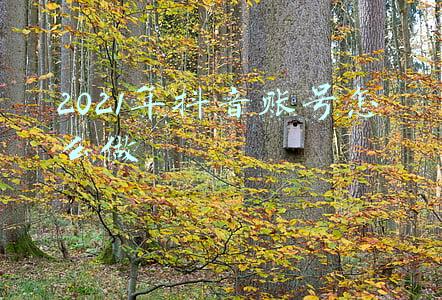 2021年抖音账号怎
么做